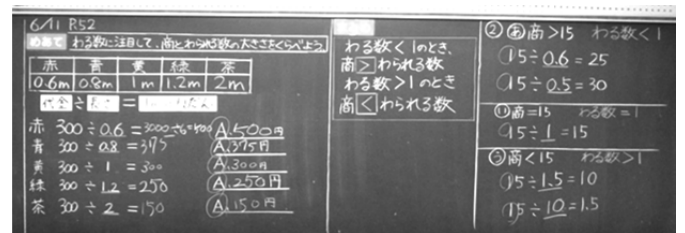 6/11 P.52
めあて わる数に注目して、商とわられる数の大きさをくらべよう。
赤 青 黄 緑 茶
0.6m 0.8m 1m 1.2m 2m
代金÷長さ=
赤 300÷0.6=3000÷6=500 A.500円
青 300÷0.8=375 A.375円
黄 300÷1=300 A.300円
緑 300÷1.2=250 A.250円
茶 300÷2=150 A.150円
わる数<1のとき、
商>わられる数
わる数>1のとき
商<わられる数
② あ 商>15 わる数<1
15÷0.6=25
15÷0.5=30
い 商=15 わる数=1
15÷1=15
う 商<15 わる数>1
15÷1.5=10
15÷10=1.5